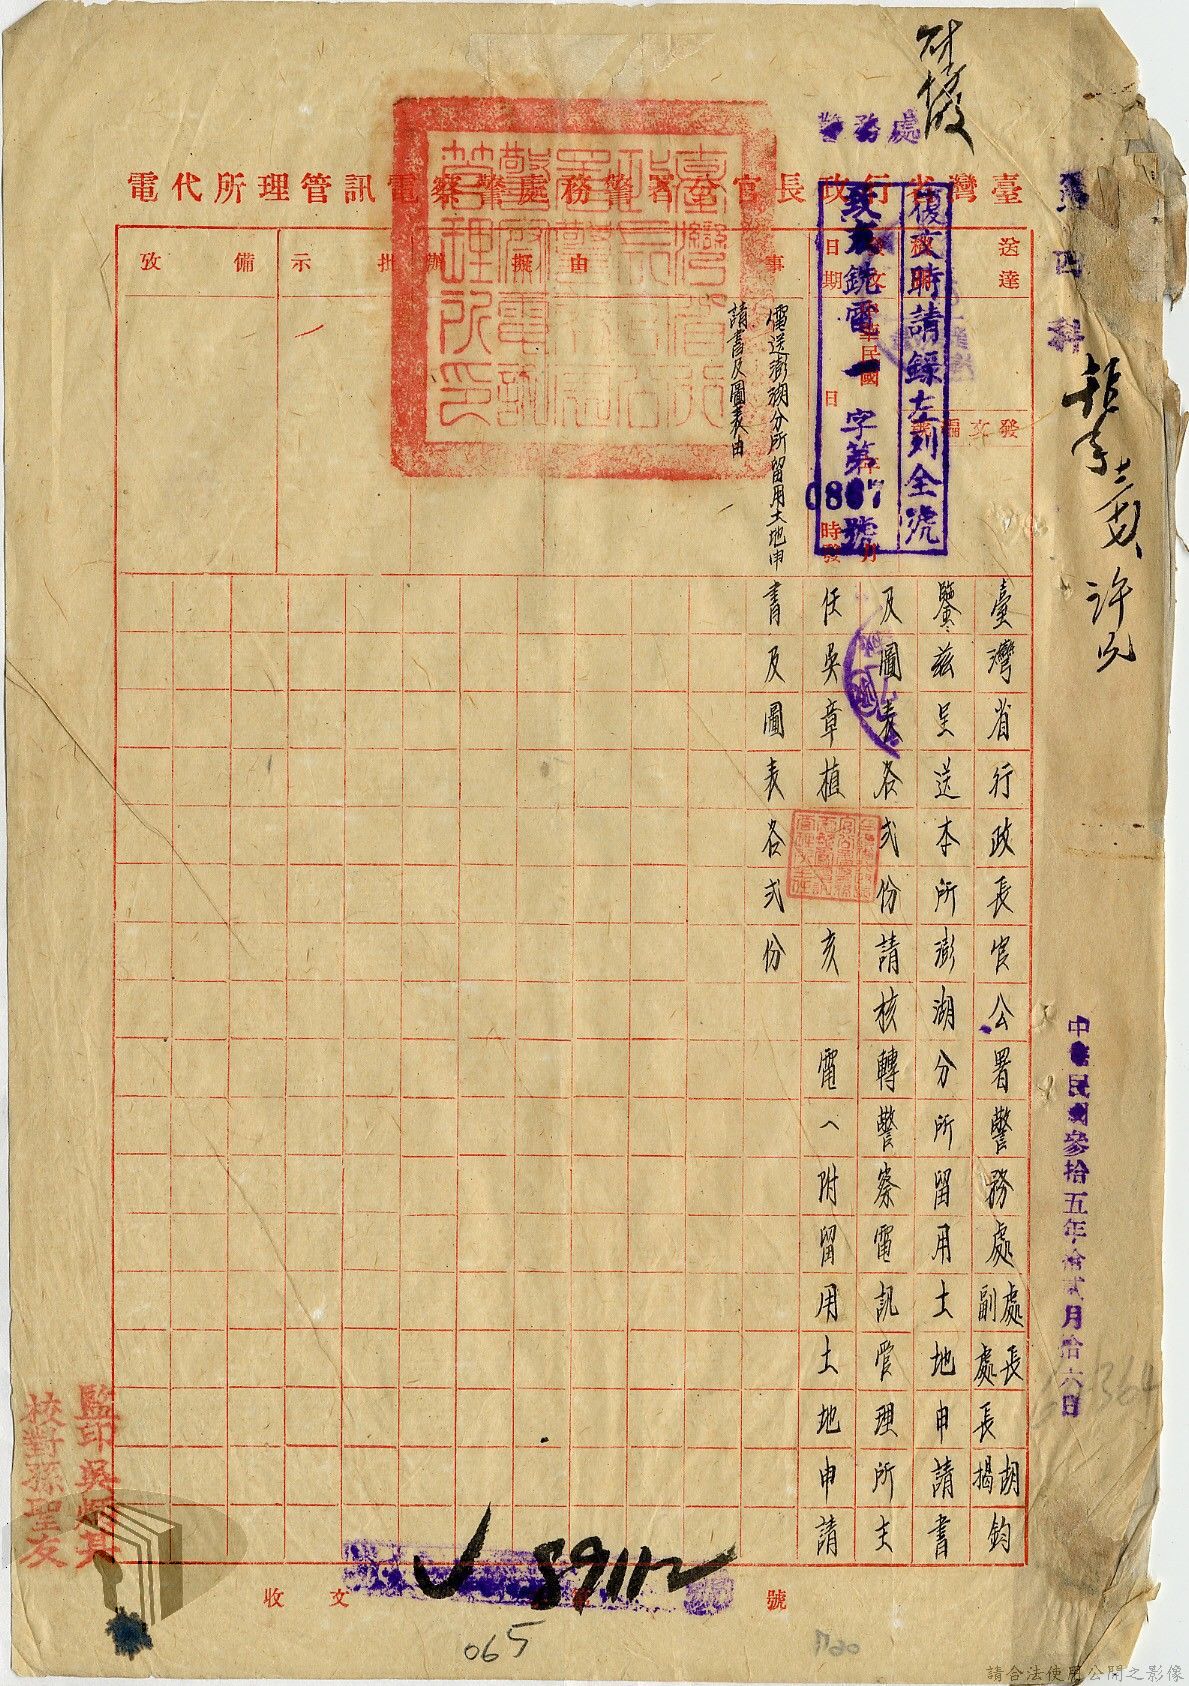 警務處
臺灣省行政長官公署警務處警察電訊管理所代電
送達
發文
事由
擬辦
批示
備攷
復文時請錄左列全號
致亥銑電一字第0867號
電送澎湖分所留用土地申
請書及圖表由
臺灣省行政長官公署警務處處長胡
副處長揭鈞
鑒茲呈送本所澎湖分所留用土地申請書
及圖表各弍份請核轉警察電訊管理所主
任吳章植 亥 電(附留用土地申請
書及圖表各弍份
中華民國參拾五年拾貳月拾六日
監印吳炳其
校對孫聖友
收文 號
89112
065
請合法使用公開之影像